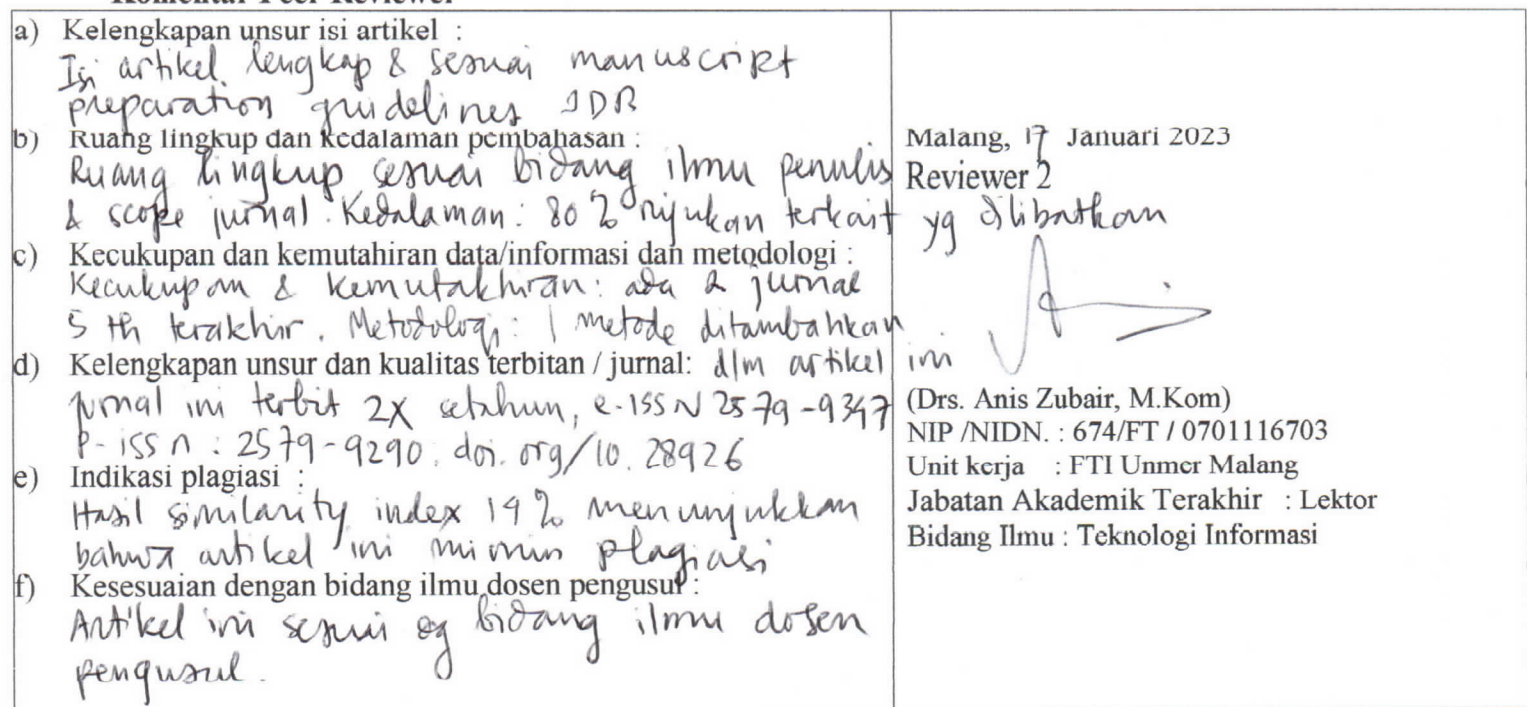 Komentar Peer Reviewer
a) Kelengkapan unsur isi artikel :
Isi artikel lengkap & sesuai manuscript
preparation guidelines
b) Ruang lingkup dan kedalaman pembahasan :
Ruang lingkup sesuai bidang ilmu penulis
& scope jurnal. Kedalaman: 80% rujukan terkait yg dilibatkan
c) Kecukupan dan kemutahiran data/informasi dan metodologi :
Kecukupan & kemutakhiran: ada 2 jurnal
5 th terakhir. Metodologi: 1 metode ditambahkan
d) Kelengkapan unsur dan kualitas terbitan / jurnal: dlm artikel ini
jurnal ini terbit 2X setahun, e-ISSN 2579-9347
P-issn : 2579-9290. doi.org/10.28926
e) Indikasi plagiasi :
Hasil similarity index 19% menunjukkan
bahwa artikel ini minim plagiasi
f) Kesesuaian dengan bidang ilmu dosen pengusul :
Artikel ini sesuai dg bidang ilmu dosen
pengusul.
Malang, 17 Januari 2023
Reviewer 2
(Drs. Anis Zubair, M.Kom)
NIP /NIDN. : 674/FT / 0701116703
Unit kerja : FTI Unmer Malang
Jabatan Akademik Terakhir : Lektor
Bidang Ilmu : Teknologi Informasi